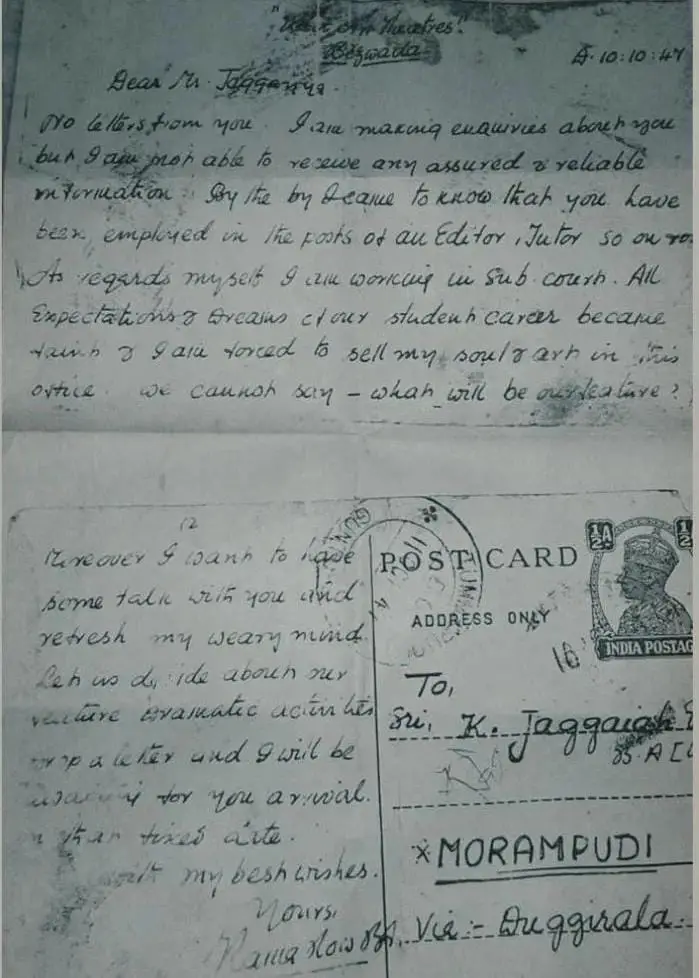 Theatres."
Bezwada
D. 10:10:47
Dear Mr. Jaggayya.
No letters from you. I am making enquiries about you
but I am not able to receive any assured & reliable
information. By the by I came to know that you have
been employed in the posts of an Editor, Tutor so on
As regards myself I am working in Sub court. All
Expectations & Dreams of our student career became
faint & I am forced to sell my soul & art in this
office. we cannot say – what will be our feature?
12
Moreover I want to have
some talk with you and
refresh my weary mind
Let us about our
feature Dramatic activities
a letter and I will be
for you arrival.
fixed date.
with my best wishes.
Yours,
Rama Row BA,
POST CARD
ADDRESS ONLY
½A
½
INDIA POSTAG
To,
Sri, K. Jaggaiah
MORAMPUDI
Via:- Duggirala.